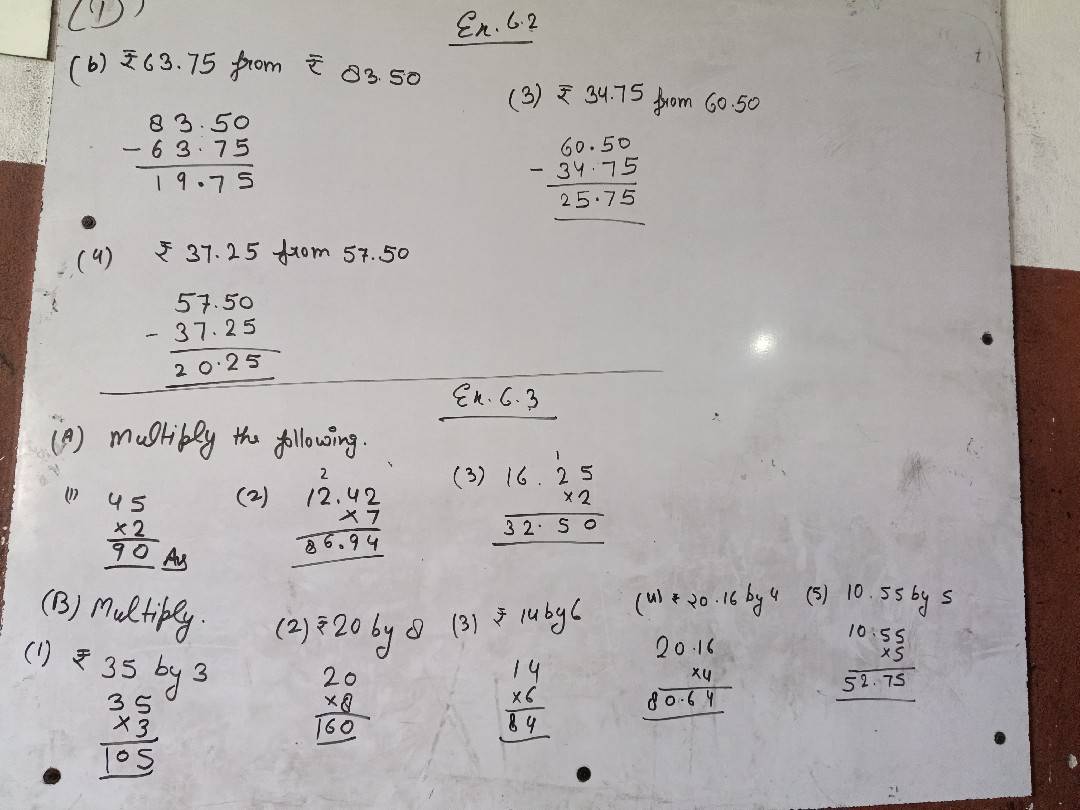 (1)
Ex. 6.2
(b) ₹63.75 from ₹ 83.50
83.50
- 63.75
19.75
(3) ₹ 34.75 from 60.50
60.50
- 34.75
25.75
(4) ₹ 37.25 from 57.50
57.50
- 37.25
20.25
Ex. 6.3
(A) Multiply the following.
(1) 45
×2
90 Ans
(2) 12.42
2
×7
86.94
(3) 16.25
1
×2
32.50
(B) Multiply.
(1) ₹ 35 by 3
35
×3
105
(2) ₹20 by 8
20
×8
160
(3) ₹ 14 by 6
14
×6
84
(4) ₹ 20.16 by 4
20.16
×4
80.64
(5) 10.55 by 5
10.55
×5
52.75